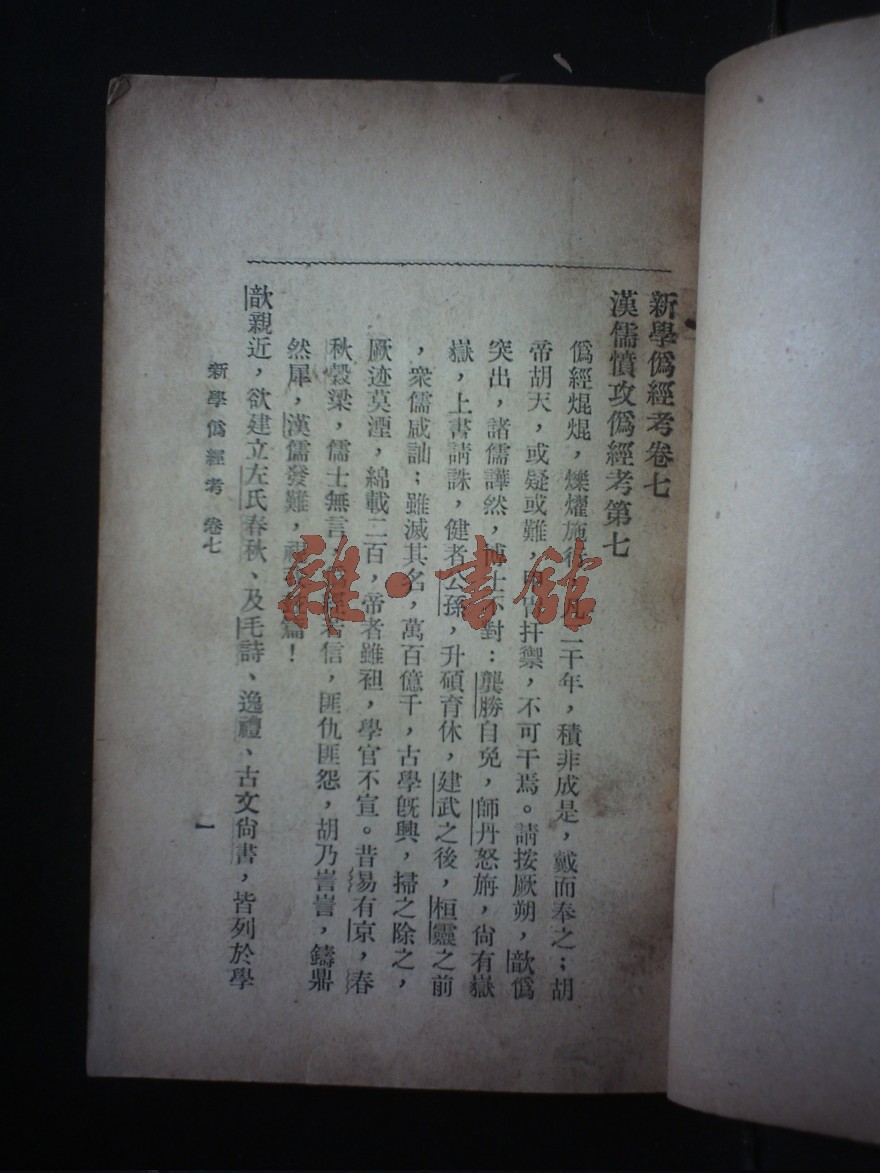 新學僞經考卷七
漢儒憤攻僞經考第七
僞經焜焜，爍燿施行，凡二千年，積非成是，戴而奉之；胡
帝胡天，或疑或難，甲冑扞禦，不可干焉。請按厥朔，歆僞
突出，諸儒譁然，博士不對：龔勝自免，師丹怒旃，尙有嶽
嶽，上書請誅，健者公孫，升碩育休，建武之後，桓靈之前
，衆儒咸訕；雖滅其名，萬百億千，古學旣興，掃之除之，
厥迹莫湮，綿載二百，帝者雖袒，學官不宣。昔易有京，春
秋穀梁，儒士無言，若信，匪仇匪怨，胡乃訾訾，鑄鼎
然犀，漢儒發難，篇！
歆親近，欲建立左氏春秋、及毛詩、逸禮、古文尙書，皆列於學
新學僞經考 卷七
一
雜·書館